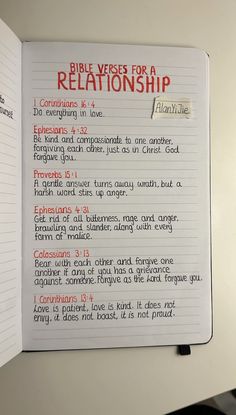 BIBLE VERSES FOR A
RELATIONSHIP
1 Corinthians 16:4
Do everything in love.
AlanYiJue
Ephesians 4:32
Be kind and compassionate to one another,
forgiving each other, just as in Christ God
forgave you.
Proverbs 15:1
A gentle answer turns away wrath, but a
harsh word stirs up anger.
Ephesians 4:31
Get rid of all bitterness, rage and anger,
brawling and slander, along with every
form of malice.
Colossians 3:13
Bear with each other and forgive one
another if any of you has a grievance
against someone. Forgive as the Lord forgave you.
1 Corinthians 13:4
Love is patient, love is kind. It does not
envy, it does not boast, it is not proud.